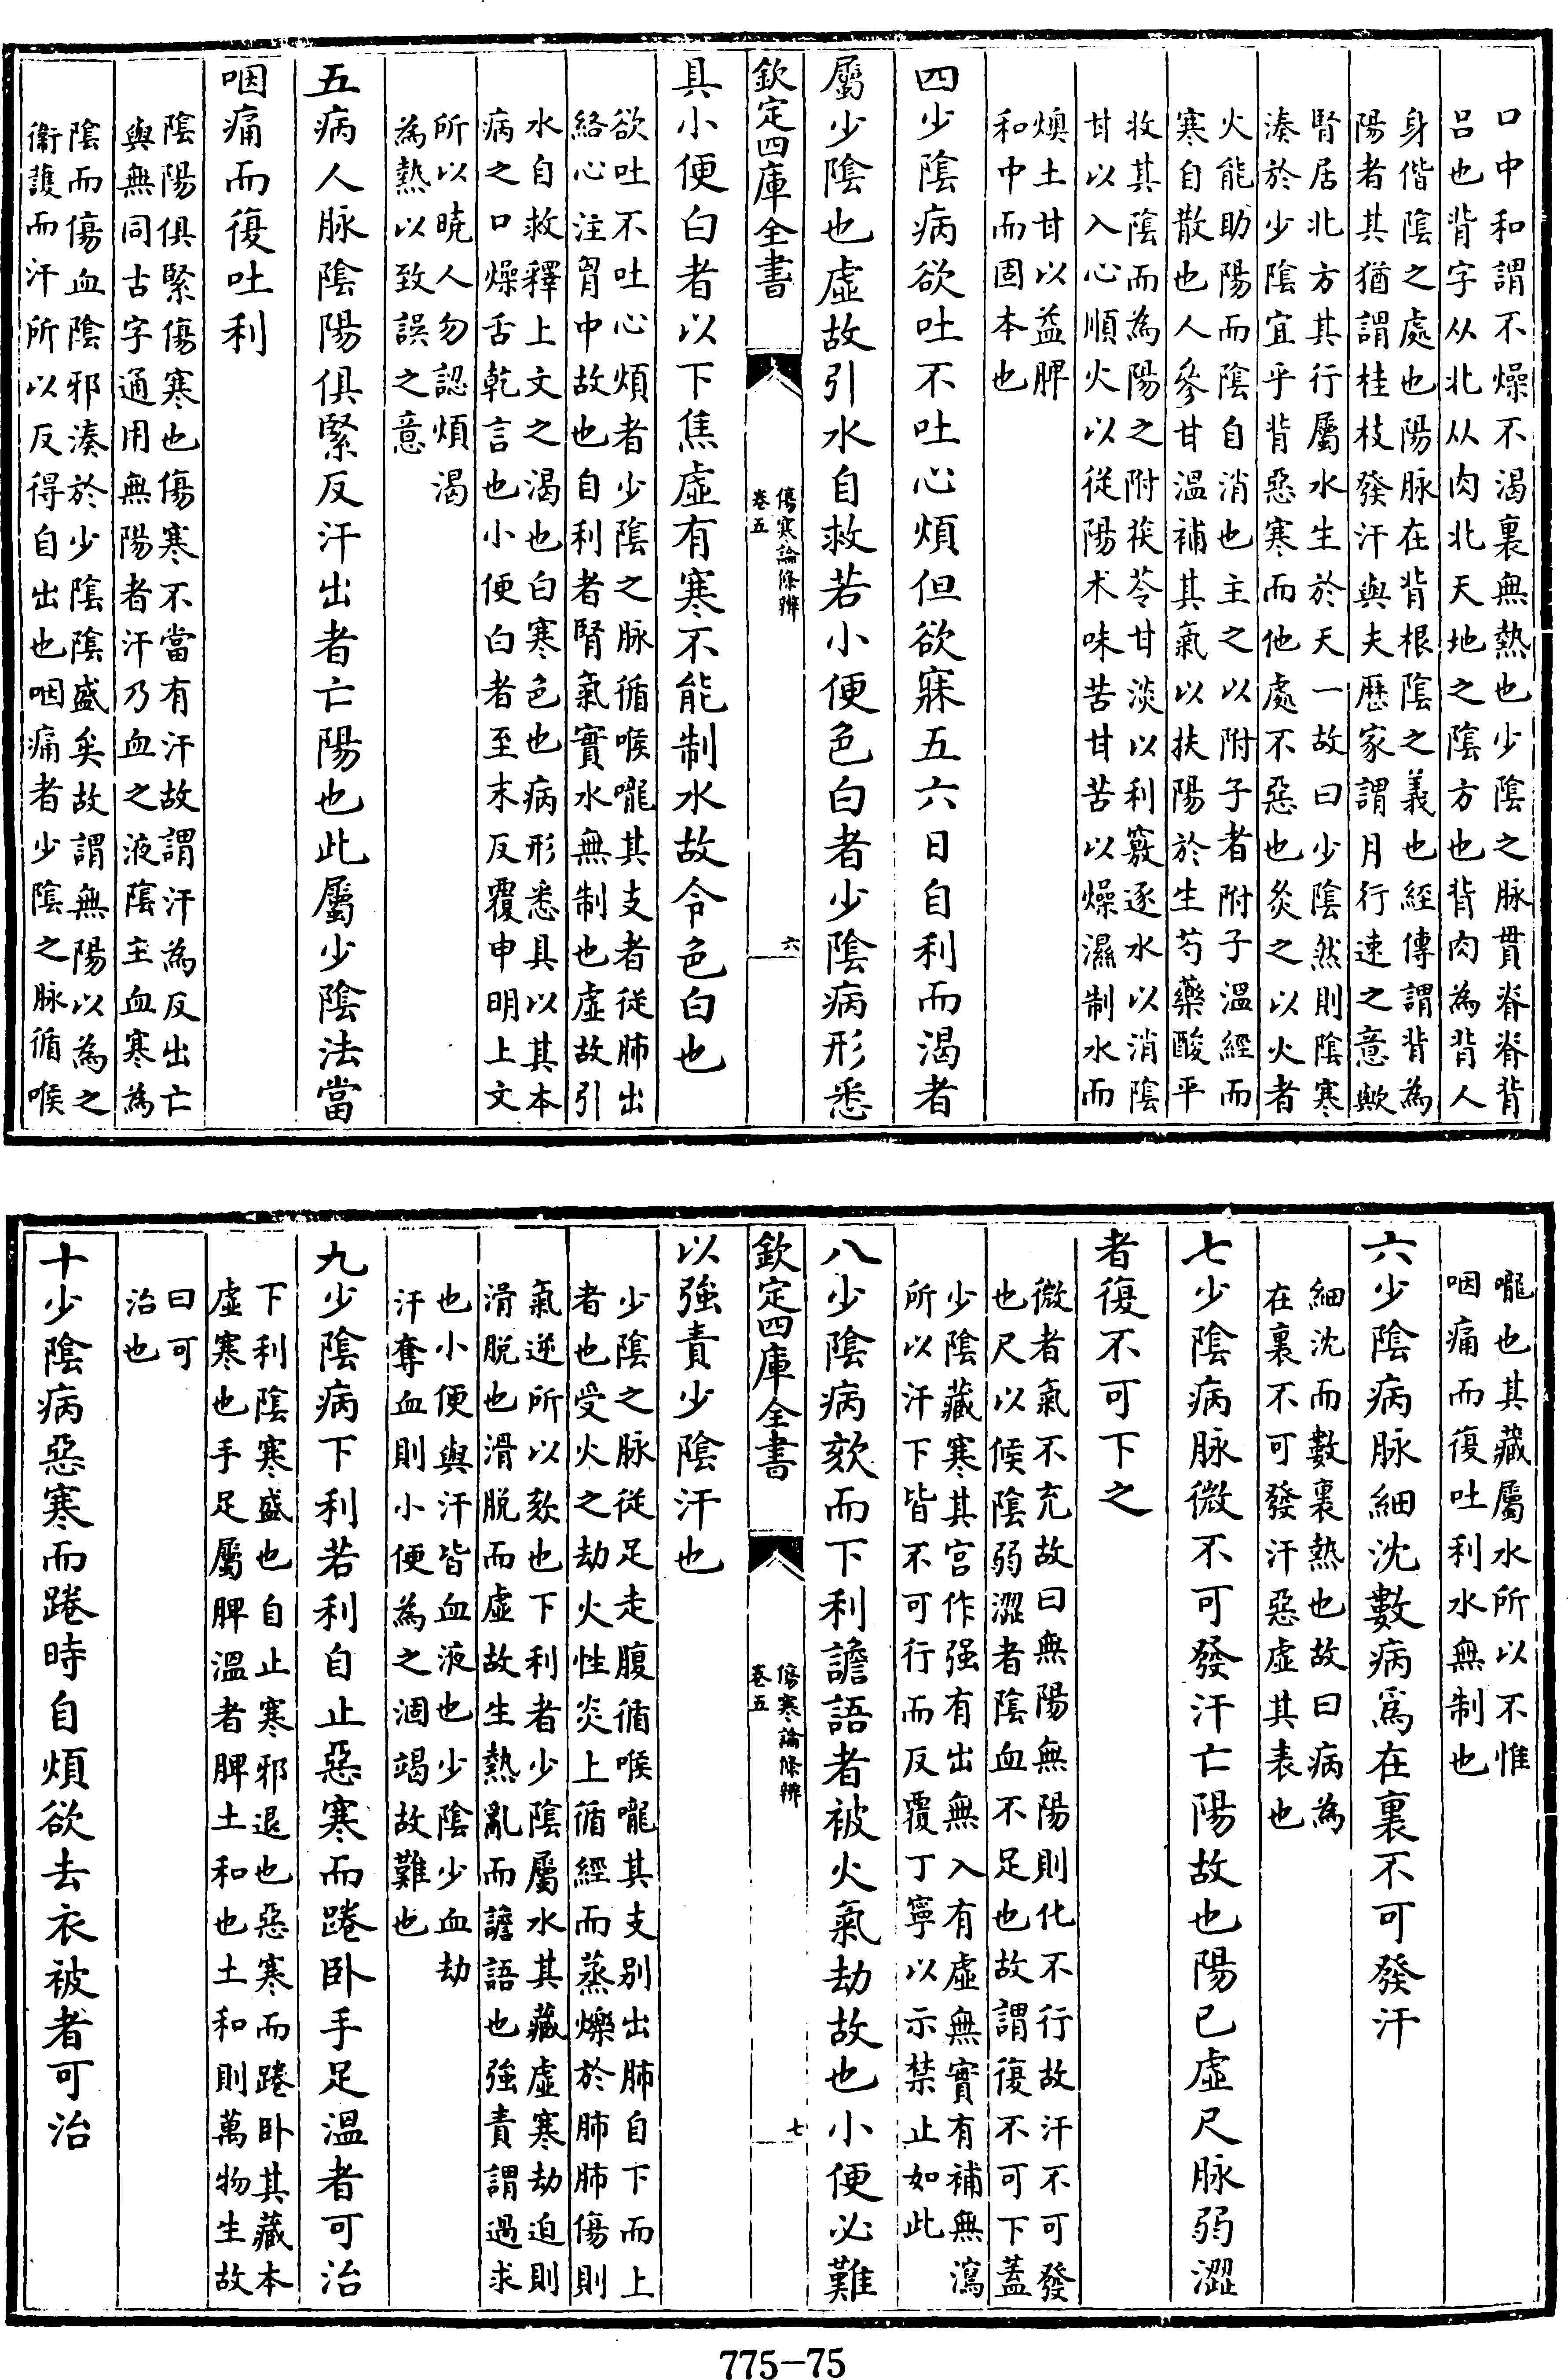 口中和謂不燥不渴裏無熱也少陰之脉貫脊脊背
呂也背字从北从肉北天地之陰方也背肉為背人
身偕陰之處也陽脉在背根陰之義也經傳謂背為
陽者其猶謂桂枝發汗與夫厯家謂月行速之意歟
腎居北方其行屬水生於天一故曰少陰然則陰寒
湊於少陰宜乎背惡寒而他處不惡也灸之以火者
火能助陽而陰自消也主之以附子者附子溫經而
寒自散也人參甘溫補其氣以扶陽於生芍藥酸平
收其陰而為陽之附茯苓甘淡以利竅逐水以消陰
甘以入心順火以從陽术味苦甘苦以燥濕制水而
燠土甘以益脾
和中而固本也
四少陰病欲吐不吐心煩但欲寐五六日自利而渴者
屬少陰也虛故引水自救若小便色白者少陰病形悉
欽定四庫全書
傷寒論條辨
卷五
六
具小便白者以下焦虛有寒不能制水故令色白也
欲吐不吐心煩者少陰之脉循喉嚨其支者從肺出
絡心注胷中故也自利者腎氣實水無制也虛故引
水自救釋上文之渴也白寒色也病形悉具以其本
病之口燥舌乾言也小便白者至末反覆申明上文
所以曉人勿認煩渴
為熱以致誤之意
五病人脉陰陽俱緊反汗出者亡陽也此屬少陰法當
咽痛而復吐利
陰陽俱緊傷寒也傷寒不當有汗故謂汗為反出亡
與無同古字通用無陽者汗乃血之液陰主血寒為
陰而傷血陰邪湊於少陰陰盛矣故謂無陽以為之
衞護而汗所以反得自出也咽痛者少陰之脉循喉
嚨也其藏屬水所以不惟
咽痛而復吐利水無制也
六少陰病脉細沈數病爲在裏不可發汗
細沈而數裏熱也故曰病為
在裏不可發汗惡虛其表也
七少陰病脉微不可發汗亡陽故也陽已虛尺脉弱澀
者復不可下之
微者氣不充故曰無陽無陽則化不行故汗不可發
也尺以候陰弱澀者陰血不足也故謂復不可下蓋
少陰藏寒其宮作强有出無入有虛無實有補無瀉
所以汗下皆不可行而反覆丁寧以示禁止如此
八少陰病欬而下利譫語者被火氣劫故也小便必難
欽定四庫全書
傷寒論條辨
卷五
七
以強責少陰汗也
少陰之脉從足走腹循喉嚨其支别出肺自下而上
者也受火之劫火性炎上循經而蒸爍於肺肺傷則
氣逆所以欬也下利者少陰屬水其藏虛寒劫迫則
滑脱也滑脱而虛故生熱亂而譫語也強責謂過求
也小便與汗皆血液也少陰少血劫
汗奪血則小便為之涸竭故難也
九少陰病下利若利自止惡寒而踡卧手足溫者可治
下利陰寒盛也自止寒邪退也惡寒而踡卧其藏本
虛寒也手足屬脾溫者脾土和也土和則萬物生故
曰可
治也
十少陰病惡寒而踡時自煩欲去衣被者可治
775-75